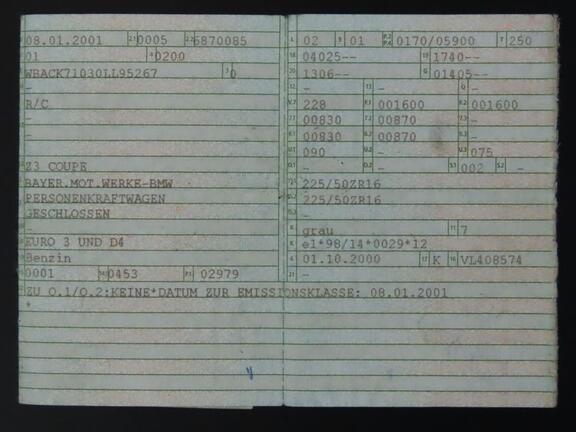 08.01.2001 0005 6870085
01 0200
WBACK71030LL95267 0
-
R/C
-
-
-
Z3 COUPE
BAYER.MOT.WERKE-BMW
PERSONENKRAFTWAGEN
GESCHLOSSEN
-
EURO 3 UND D4
Benzin
0001 0453 02979
02 01 0170/05900 250
04025-- 1740--
1306-- 01405--
- - -
228 001600 001600
00830 00870 -
00830 00870 -
090 - 075
- - 002 -
225/50ZR16
225/50ZR16
-
grau 7
e1*98/14*0029*12
01.10.2000 K VL408574
-
ZU O.1/O.2:KEINE*DATUM ZUR EMISSIONSKLASSE: 08.01.2001
*